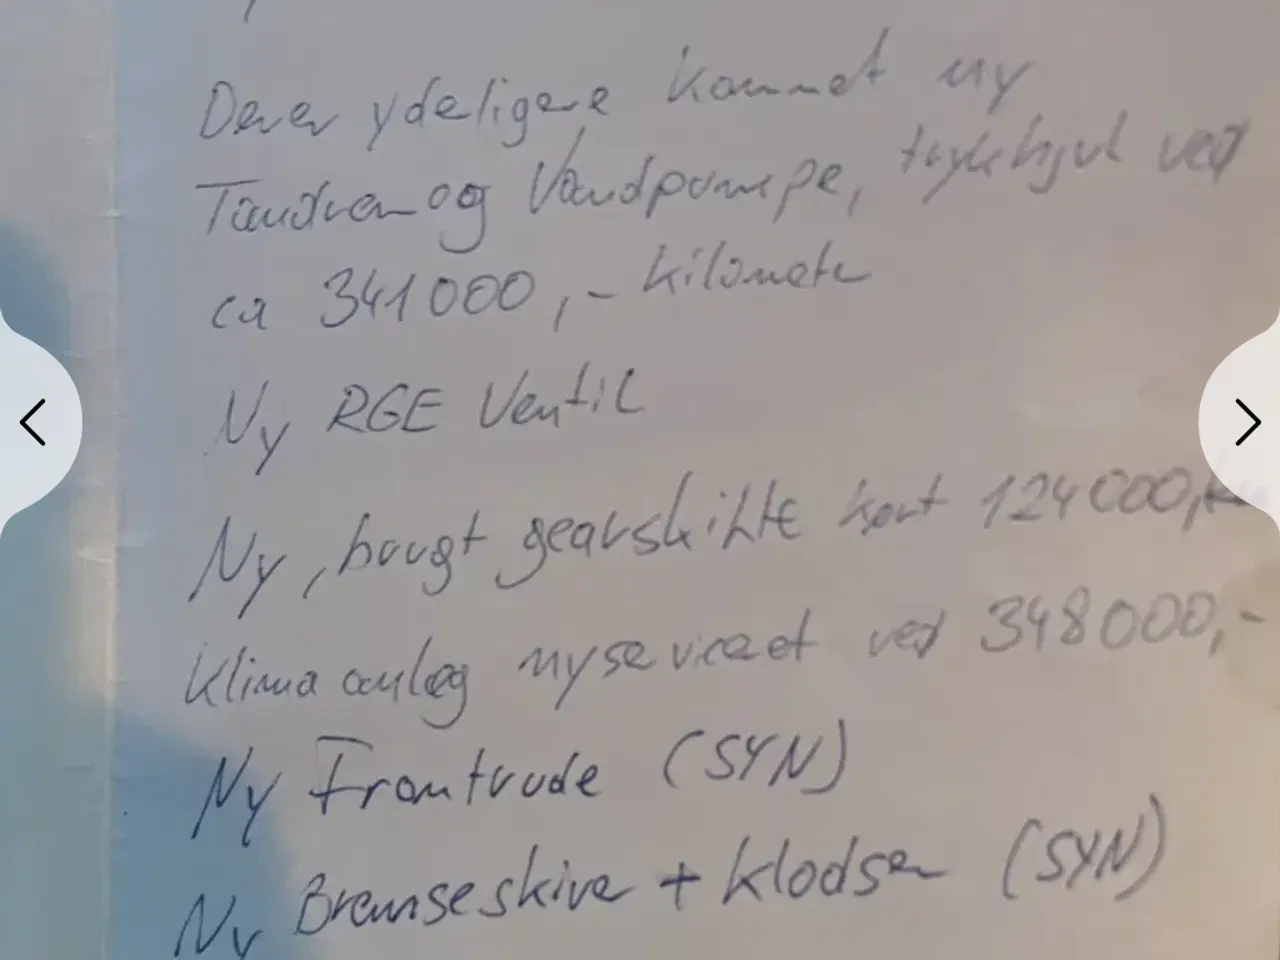 Der er ydeligere kommet ny
Tandrem og Vandpumpe, trykhjul ved
ca 341000,- kilometer
Ny RGE Ventil
Ny, brugt gearskifte kørt 124000,km
Klima anlæg nyserviceet ved 348000,-
Ny Frontrude (SYN)
Ny Bremseskiver + klodser (SYN)